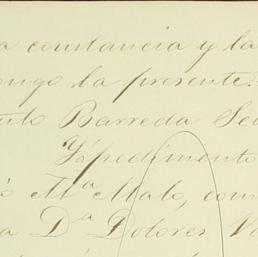 a constancia y la
ongo la presente.
tulo Barreda Sec
Y á pedimento
ó M.ª Malo, com
a D.ª Dolores V